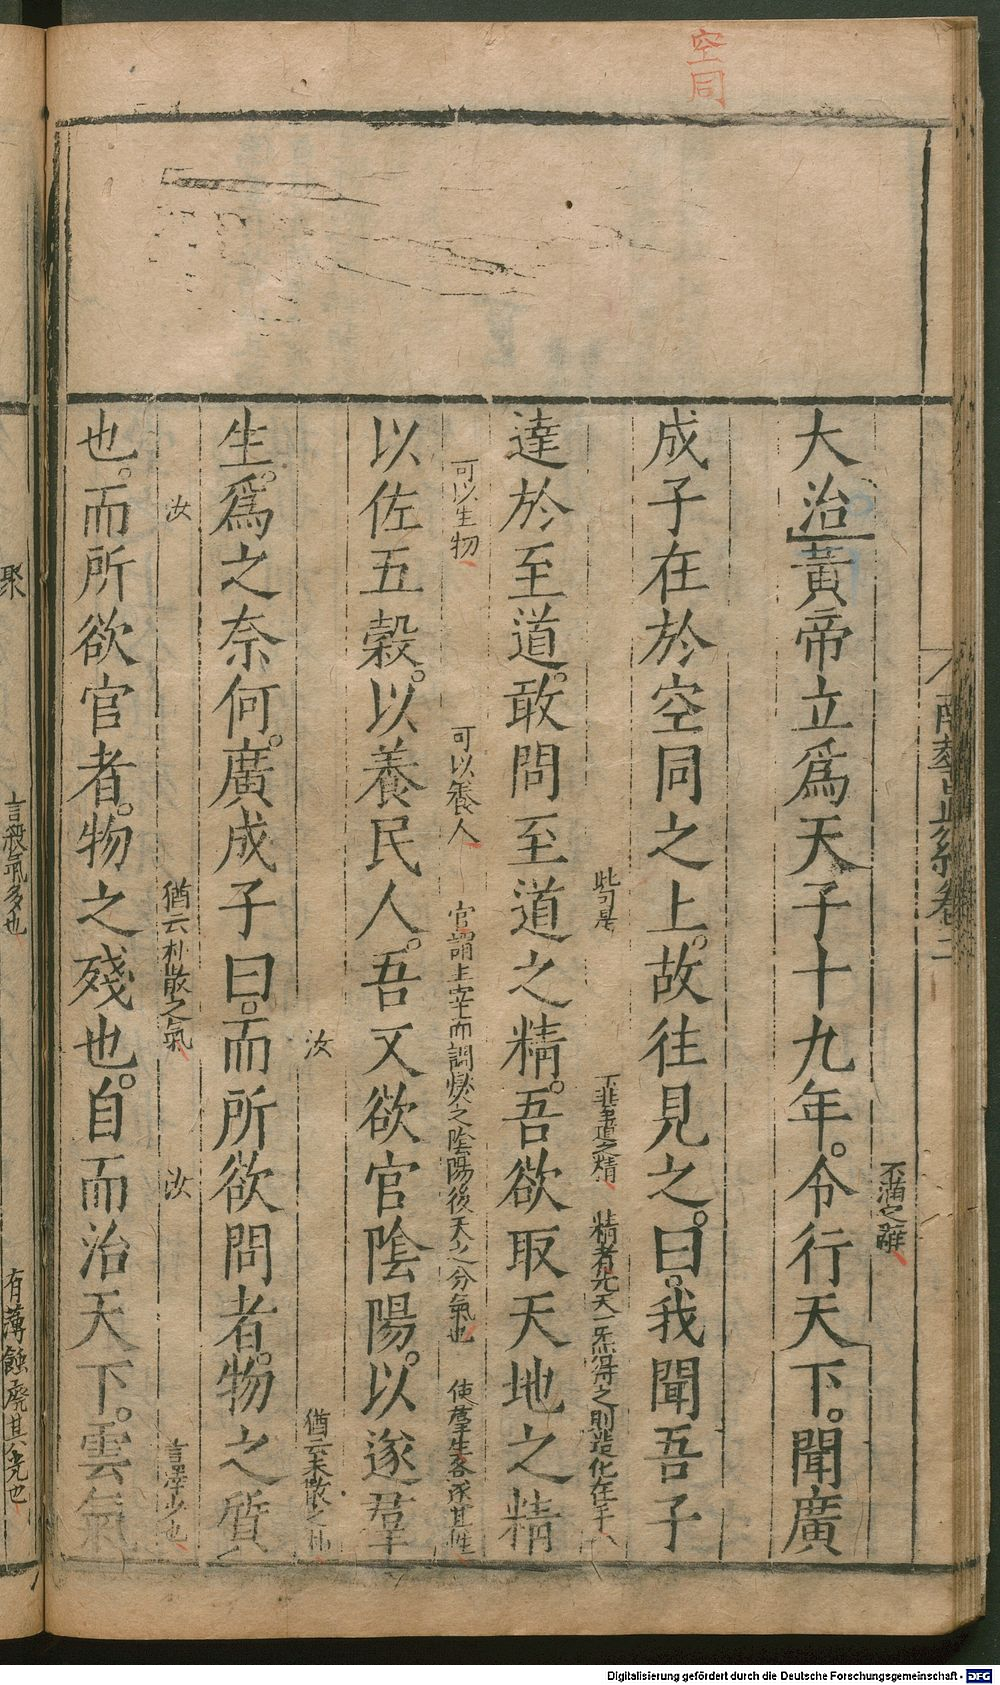 空同
南華眞經卷二
不滿之辭
大治黃帝立爲天子十九年。令行天下。聞廣
成子在於空同之上。故往見之。曰。我聞吾子
此句是
下非至道之精
精者先天一炁得之則造化在手
達於至道。敢問至道之精。吾欲取天地之精
可以生物
可以養人
官謂主宰而調燮之陰陽後天之分氣也
使羣生各遂其性
以佐五穀。以養民人。吾又欲官陰陽。以遂羣
汝
猶云未散之朴
生。爲之奈何。廣成子曰。而所欲問者。物之質
汝
猶云朴散之氣
汝
言澤少也
也。而所欲官者。物之殘也。自而治天下。雲氣
聚
言殺氣多也
有薄蝕廢其光也
Digitalisierung gefördert durch die Deutsche Forschungsgemeinschaft - DFG